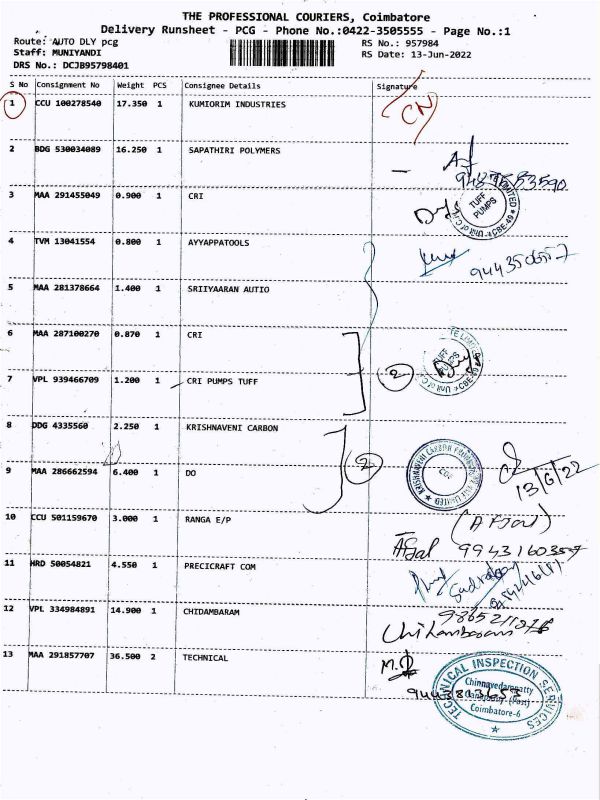 THE PROFESSIONAL COURIERS, Coimbatore
Delivery Runsheet - PCG - Phone No.:0422-3505555 - Page No.:1
Route: AUTO DLY pcg RS No.: 957984
Staff: MUNIYANDI RS Date: 13-Jun-2022
DRS No.: DCJB95798401
S No Consignment No Weight PCS Consignee Details Signature
1 CCU 100278540 17.350 1 KUMIORIM INDUSTRIES CN
2 BDG 530034089 16.250 1 SAPATHIRI POLYMERS
3 MAA 291455049 0.900 1 CRI
TUFF PUMPS
4 TVM 13041554 0.800 1 AYYAPPATOOLS
5 MAA 281378664 1.400 1 SRIIYAARAN AUTIO
6 MAA 287100270 0.870 1 CRI
TUFF PUMPS
7 VPL 939466709 1.200 1 CRI PUMPS TUFF 2
8 DDG 4335560 2.250 1 KRISHNAVENI CARBON
9 MAA 286662594 6.400 1 DO 2
13/6/22
10 CCU 501159670 3.000 1 RANGA E/P
Afsal
11 HRD 50054821 4.550 1 PRECICRAFT COM
12 VPL 334984891 14.900 1 CHIDAMBARAM
13 MAA 291857707 36.500 2 TECHNICAL
TECHNICAL INSPECTION SERVICES
Coimbatore-6